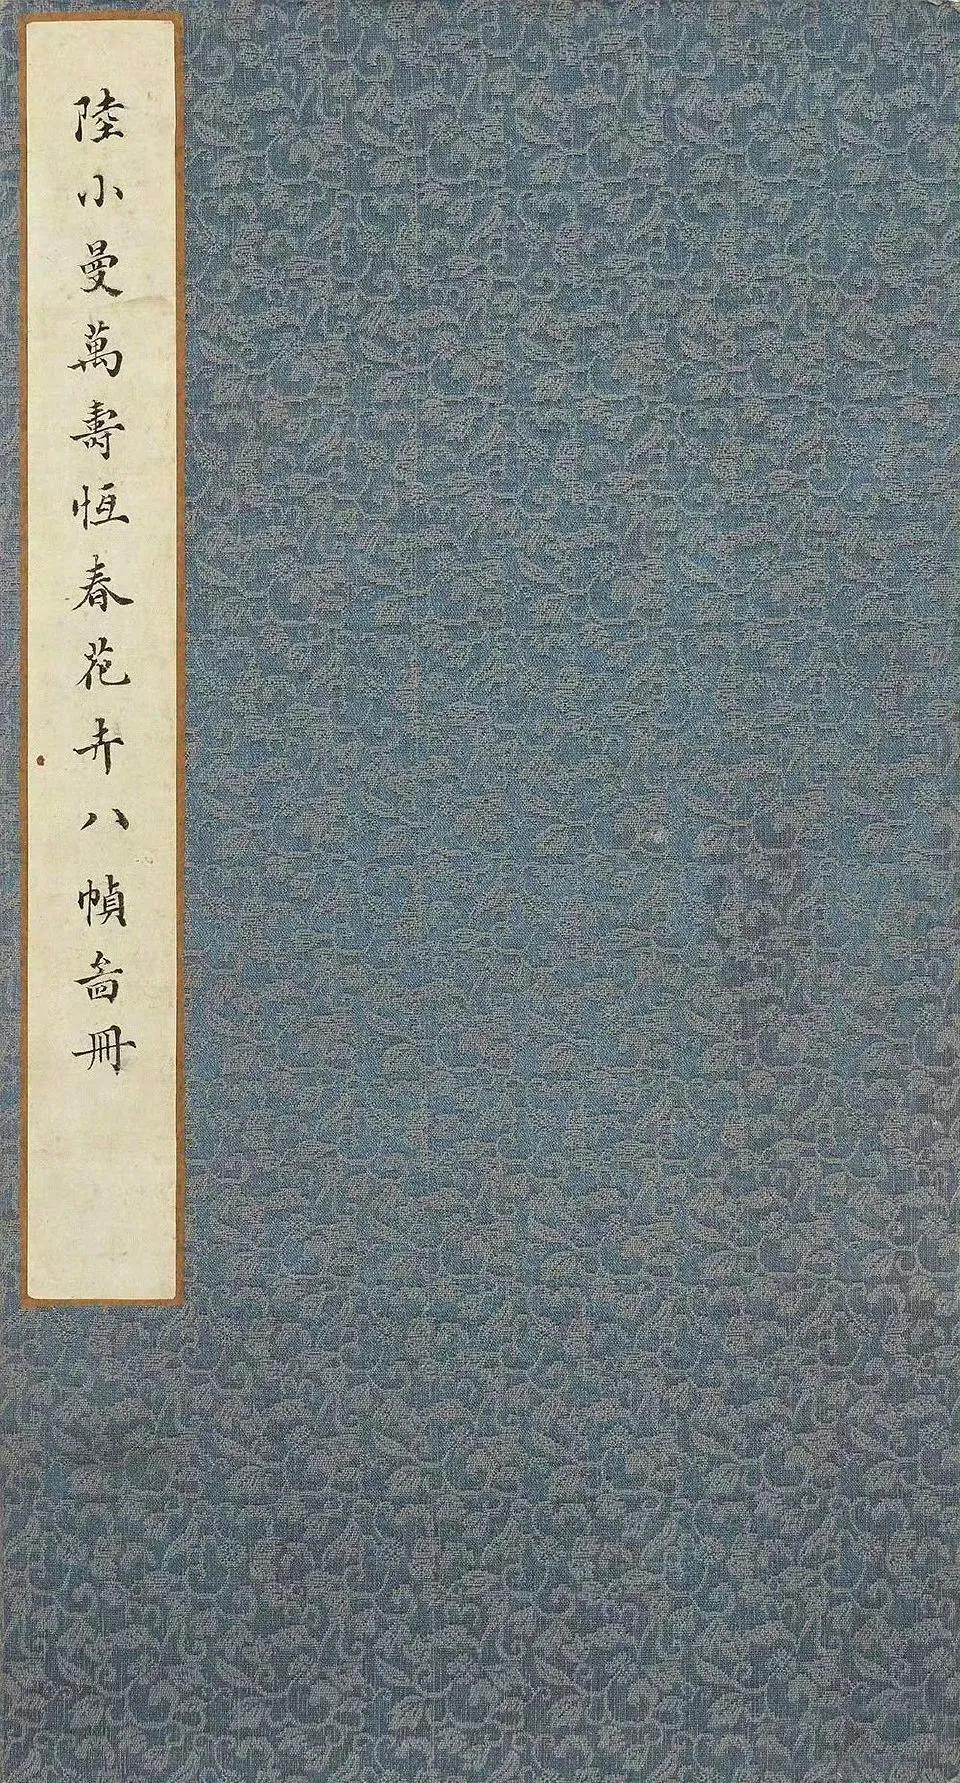 陸小曼萬壽恆春花卉八幀啚冊